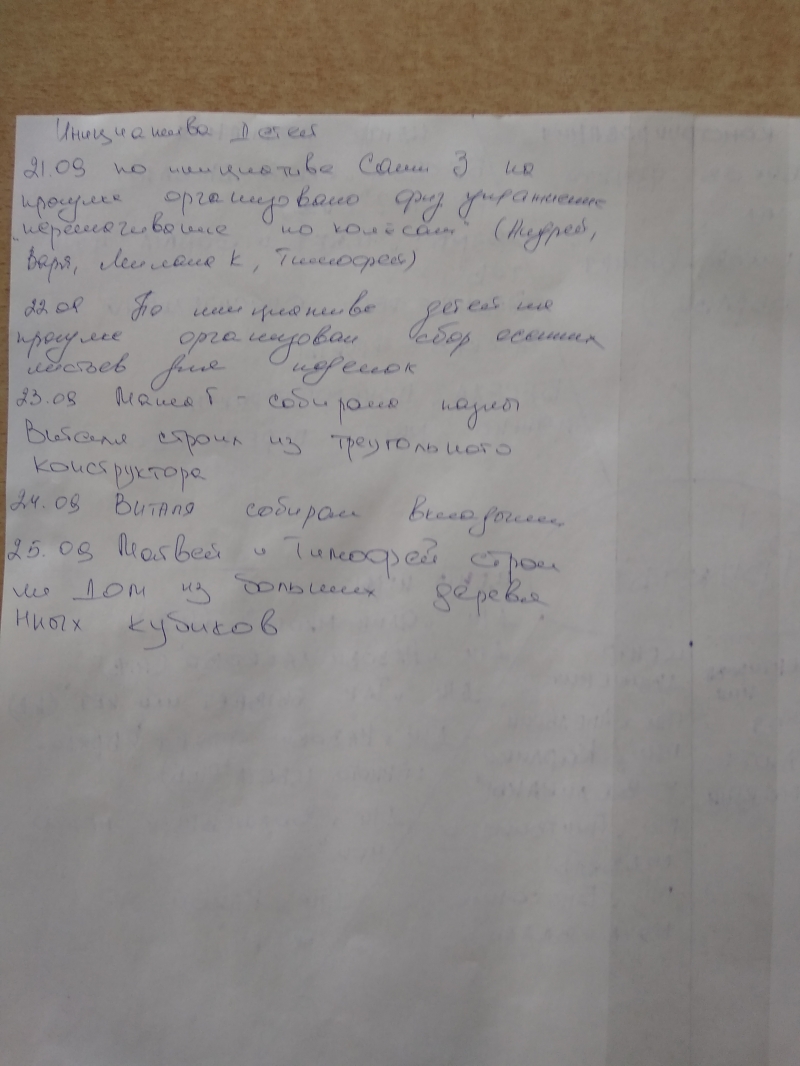 Инициатива Детей
21.09 по инициативе Саши З на
прогулке организовано физ упражнение
"перешагивание по колёсам" (Андрей,
Варя, Милана К, Тимофей)
22.09 По инициативе детей на
прогулке организован сбор осенних
листьев для поделок
23.09 Маша Г - собирала пазлы
Виталя строил из треугольного
конструктора
24.09 Виталя собирал вкладыши
25.09 Матвей и Тимофей строи
ли Дом из больших деревя
нных кубиков